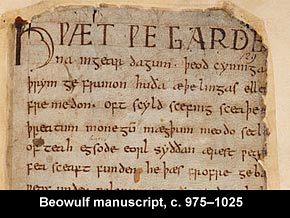 HǷÆT ǷE GARDE
na ingear dagum · þeod cyninga
þrym ge frunon huda æþelingas ellen
fre medon. oft scyld scefing sceaþe
þreatum monegū mægþum meodo setl
of teah egsode eorl syððan ærest
sceaft funden he þæs frofre geba
Beowulf manuscript, c. 975–1025